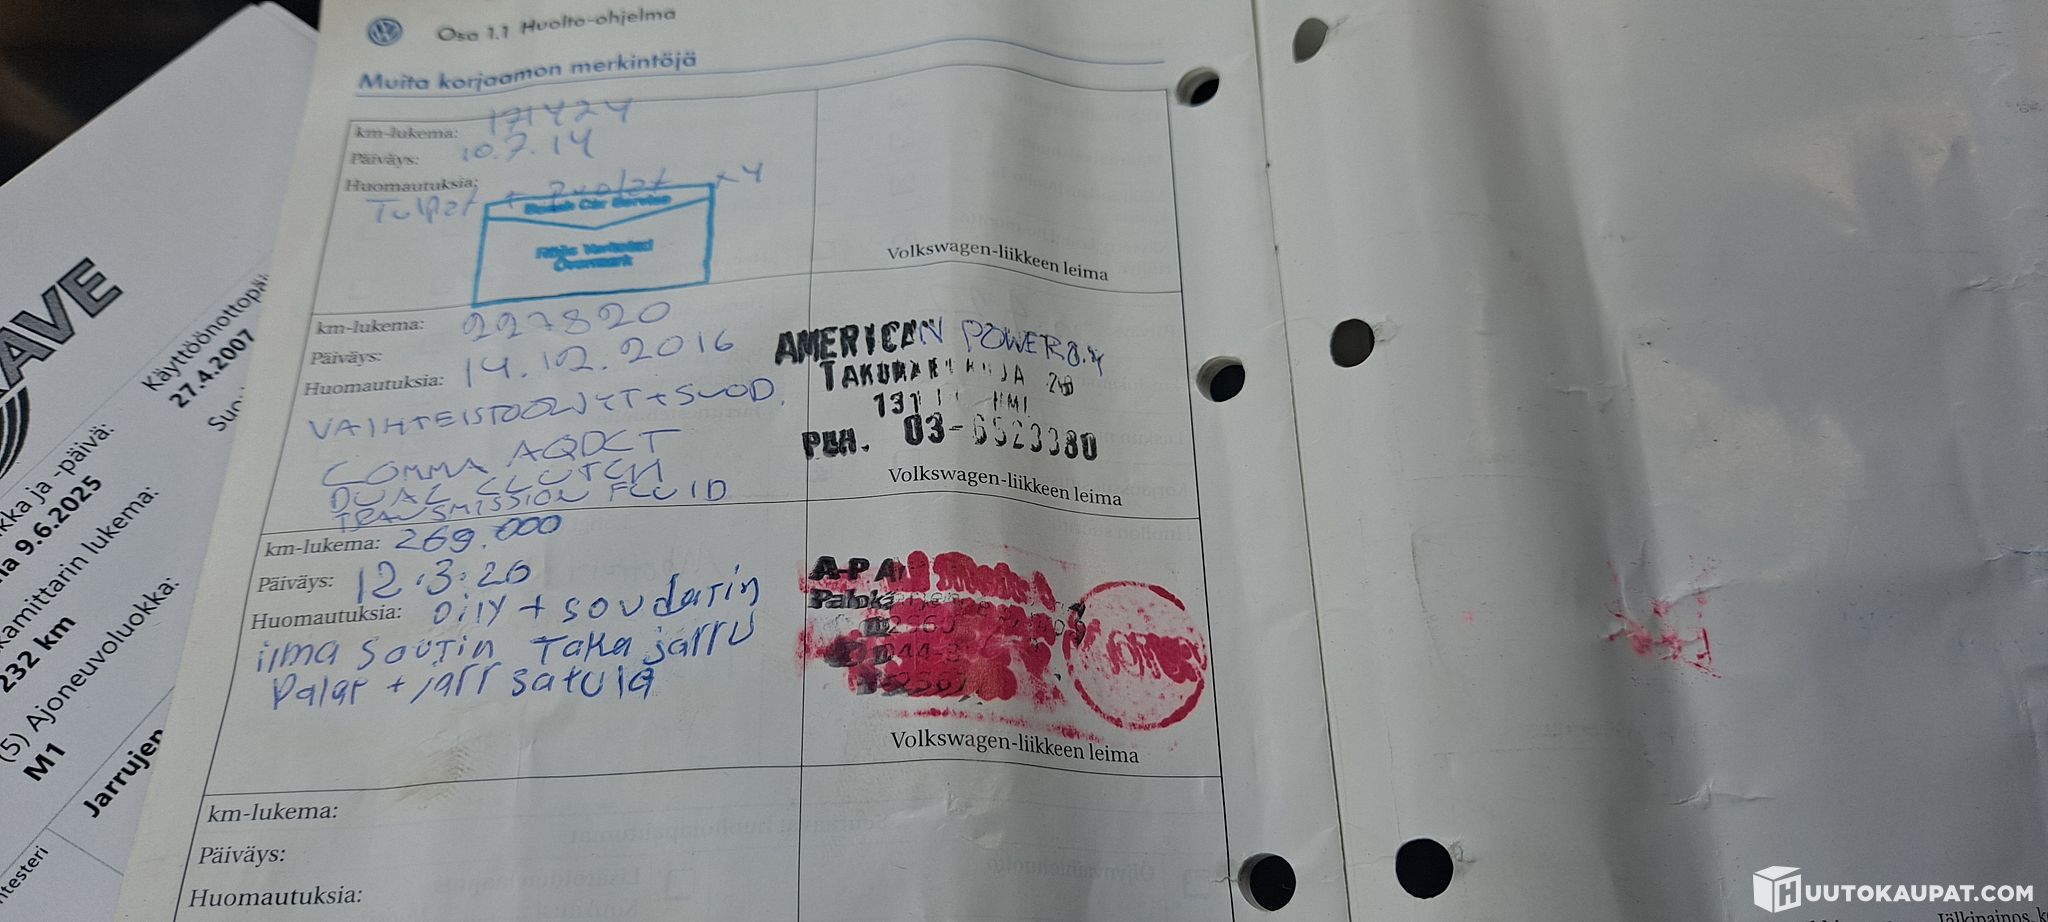 Osa 1.1 Huolto-ohjelma
Muita korjaamon merkintöjä
km-lukema: 171424
Päiväys: 10.7.14
Huomautuksia:
Tulpat + Puolat x4
Car Service
Volkswagen-liikkeen leima
km-lukema: 227820
Päiväys: 14.12.2016
Huomautuksia:
VAIHTEISTOÖLJYT + SUOD.
COMMA AQDCT
DUAL CLUTCH
TRANSMISSION FLUID
AMERICAN POWER
PUH. 03-6523380
Volkswagen-liikkeen leima
km-lukema: 269.000
Päiväys: 12.3.20
Huomautuksia: öily + soudatin
ilma soutin Taka jarru
Palat + jarr satula
A-P
Volkswagen-liikkeen leima
km-lukema:
Päiväys:
Huomautuksia:
AVE
Käyttöönottopä
27.4.2007
kka ja -päivä:
la 9.6.2025
kamittarin lukema:
232 km
(5) Ajoneuvoluokka:
M1
Jarrujen
ntesteri
HUUTOKAUPAT.COM